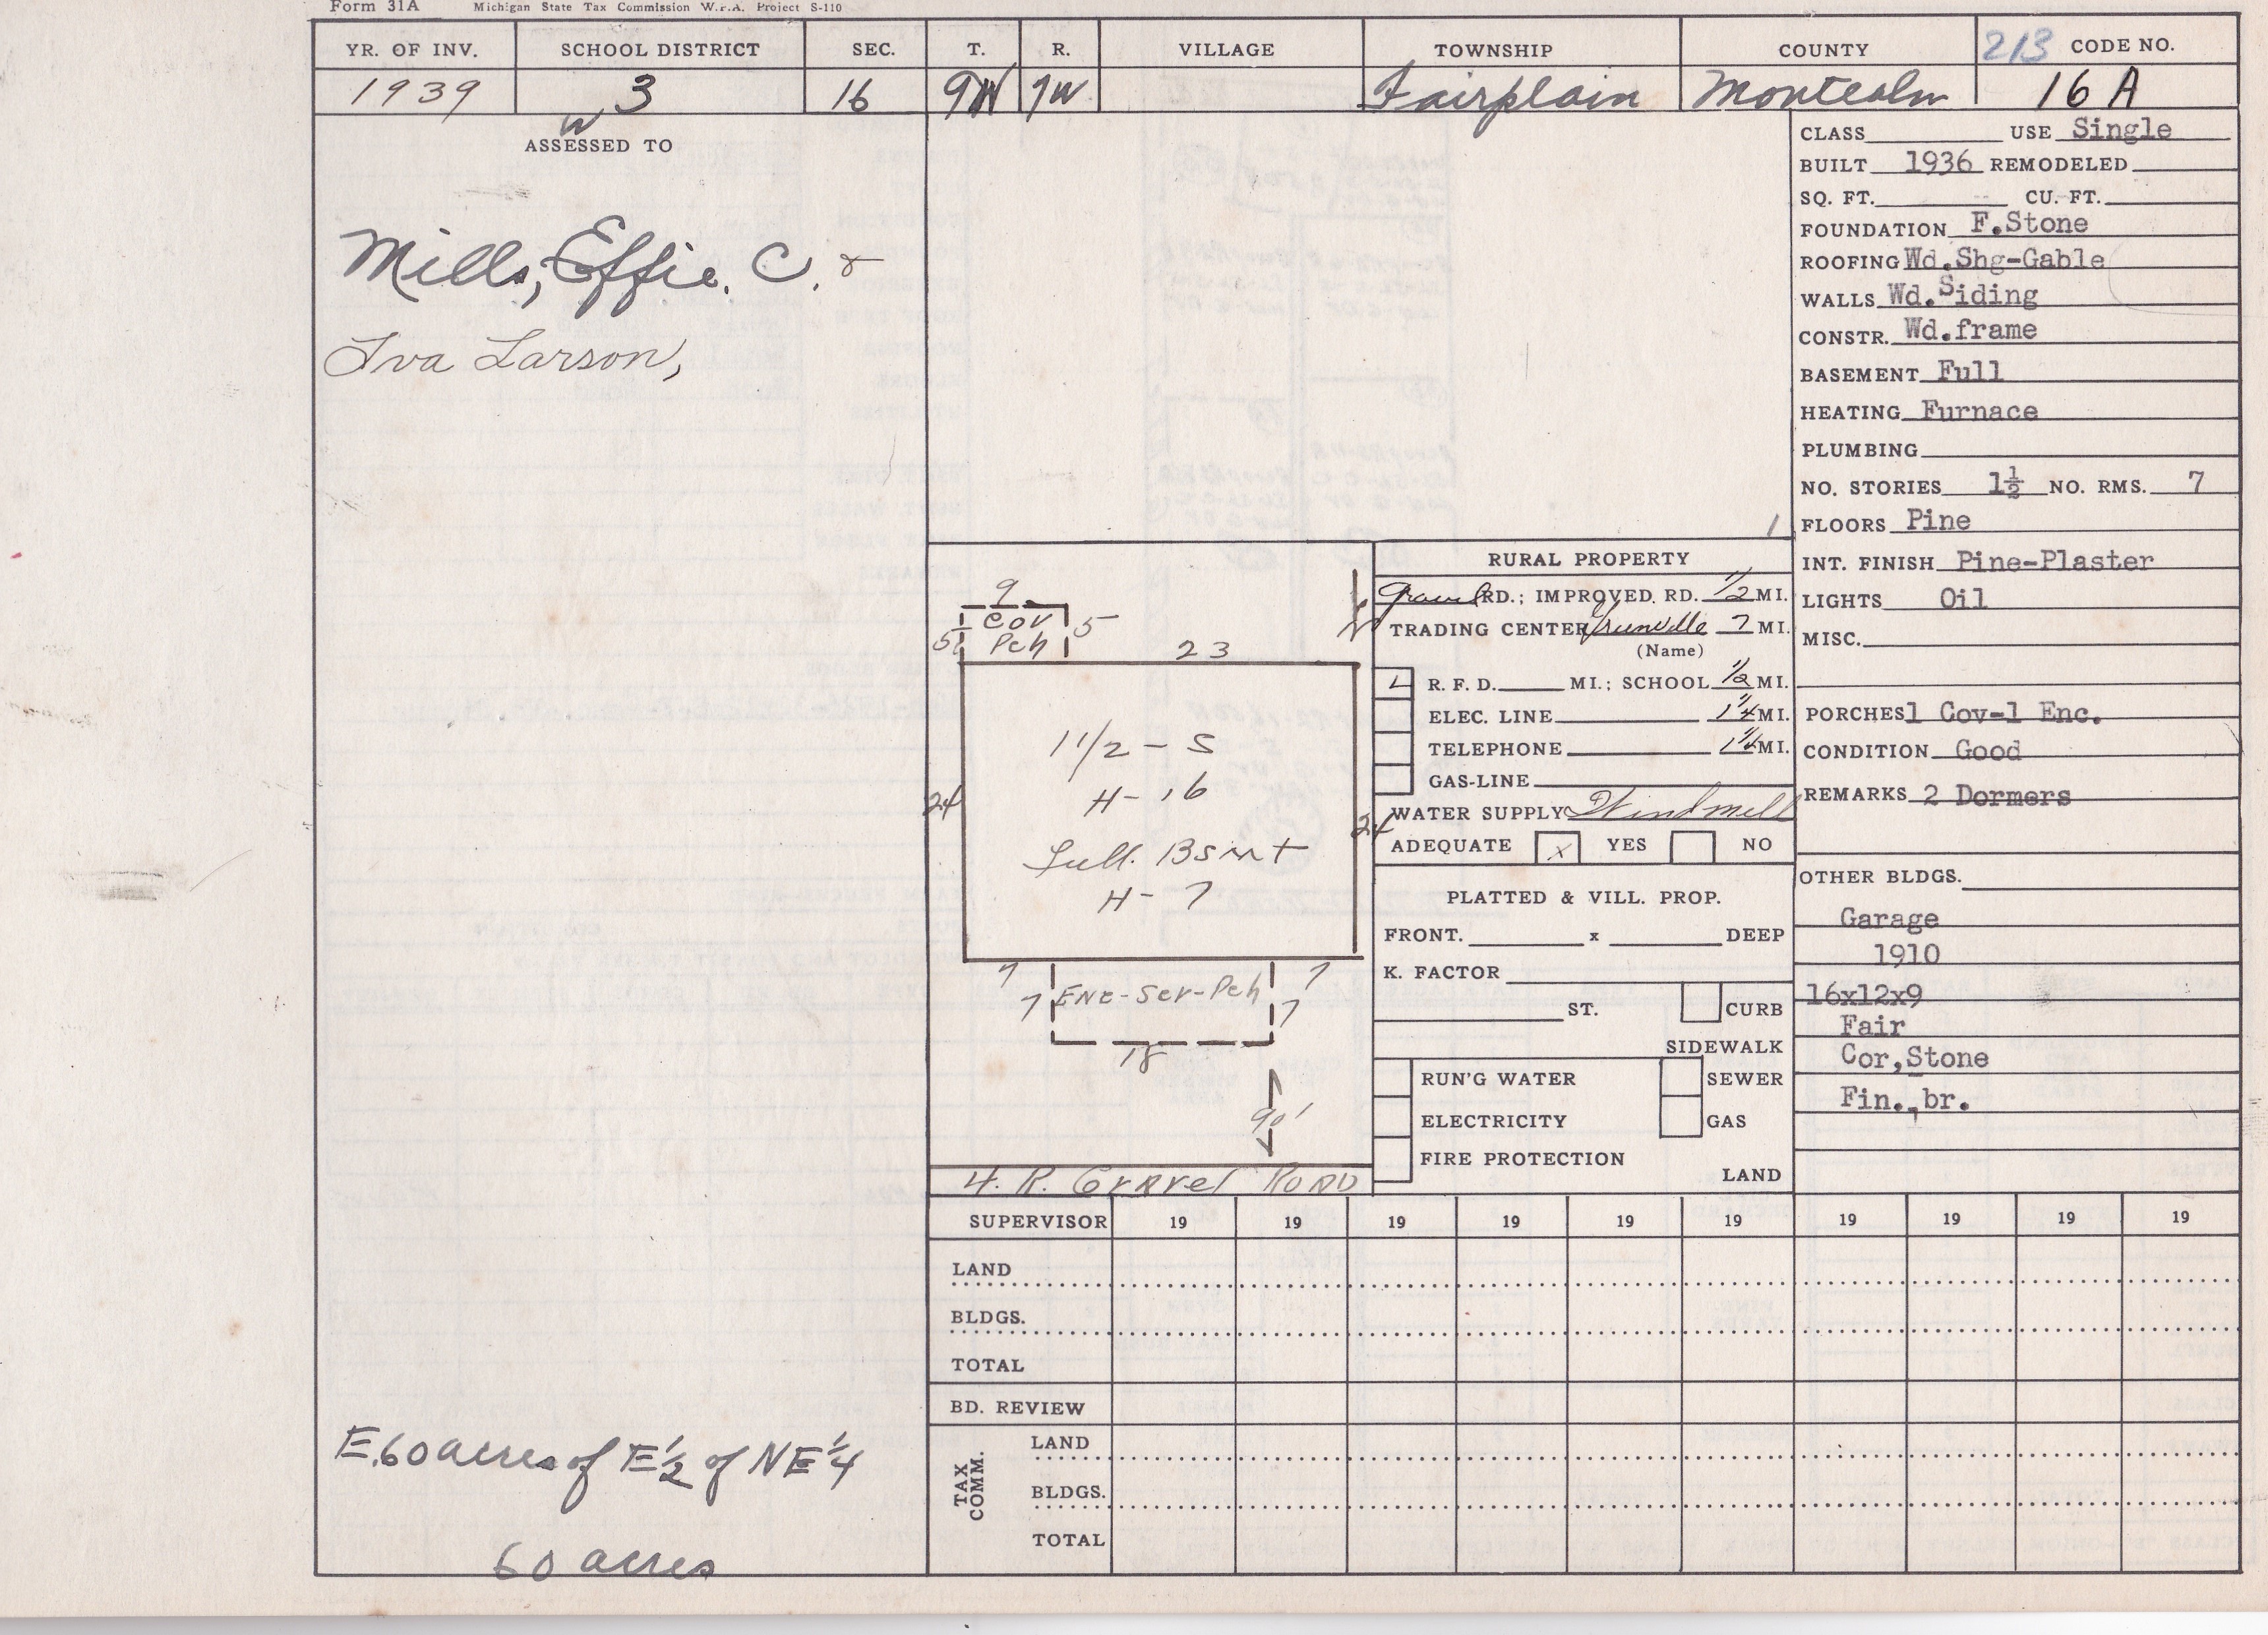 Form 31A Michigan State Tax Commission W.P.A. Project S-110
YR. OF INV. SCHOOL DISTRICT SEC. T. R. VILLAGE TOWNSHIP COUNTY 213 CODE NO.
1939 3 16 9N 7W Fairplain Montcalm 16 A
W
ASSESSED TO
Mills, Effie. C. &
Iva Larson,
E.60 acres of E½ of NE¼
60 acres
CLASS USE Single
BUILT 1936 REMODELED
SQ. FT. CU. FT.
FOUNDATION F.Stone
ROOFING Wd.Shg-Gable
WALLS Wd.Siding
CONSTR. Wd.frame
BASEMENT Full
HEATING Furnace
PLUMBING
NO. STORIES 1½ NO. RMS. 7
FLOORS Pine
INT. FINISH Pine-Plaster
LIGHTS Oil
MISC.
PORCHES 1 Cov-1 Enc.
CONDITION Good
REMARKS 2 Dormers
OTHER BLDGS.
Garage
1910
16x12x9
Fair
Cor,Stone
Fin.,br.
9
5 Cov 5
Pch
23
1 1/2 - S
H - 16
24 24
Full. Bsmt
H - 7
7 7
7 Enc-Ser-Pch 7
18
90'
4. R. Gravel Road
RURAL PROPERTY
Gravel RD.; IMPROVED. RD. 1/2 MI.
TRADING CENTER Greenville 7 MI.
(Name)
R. F. D. MI.; SCHOOL 1/2 MI.
ELEC. LINE 1 1/4 MI.
TELEPHONE 1 1/4 MI.
GAS-LINE
WATER SUPPLY Windmill
ADEQUATE x YES NO
PLATTED & VILL. PROP.
FRONT. x DEEP
K. FACTOR
ST. CURB
SIDEWALK
RUN'G WATER SEWER
ELECTRICITY GAS
FIRE PROTECTION
LAND
SUPERVISOR 19 19 19 19 19 19 19 19 19 19
LAND
BLDGS.
TOTAL
BD. REVIEW
TAX COMM.
LAND
BLDGS.
TOTAL